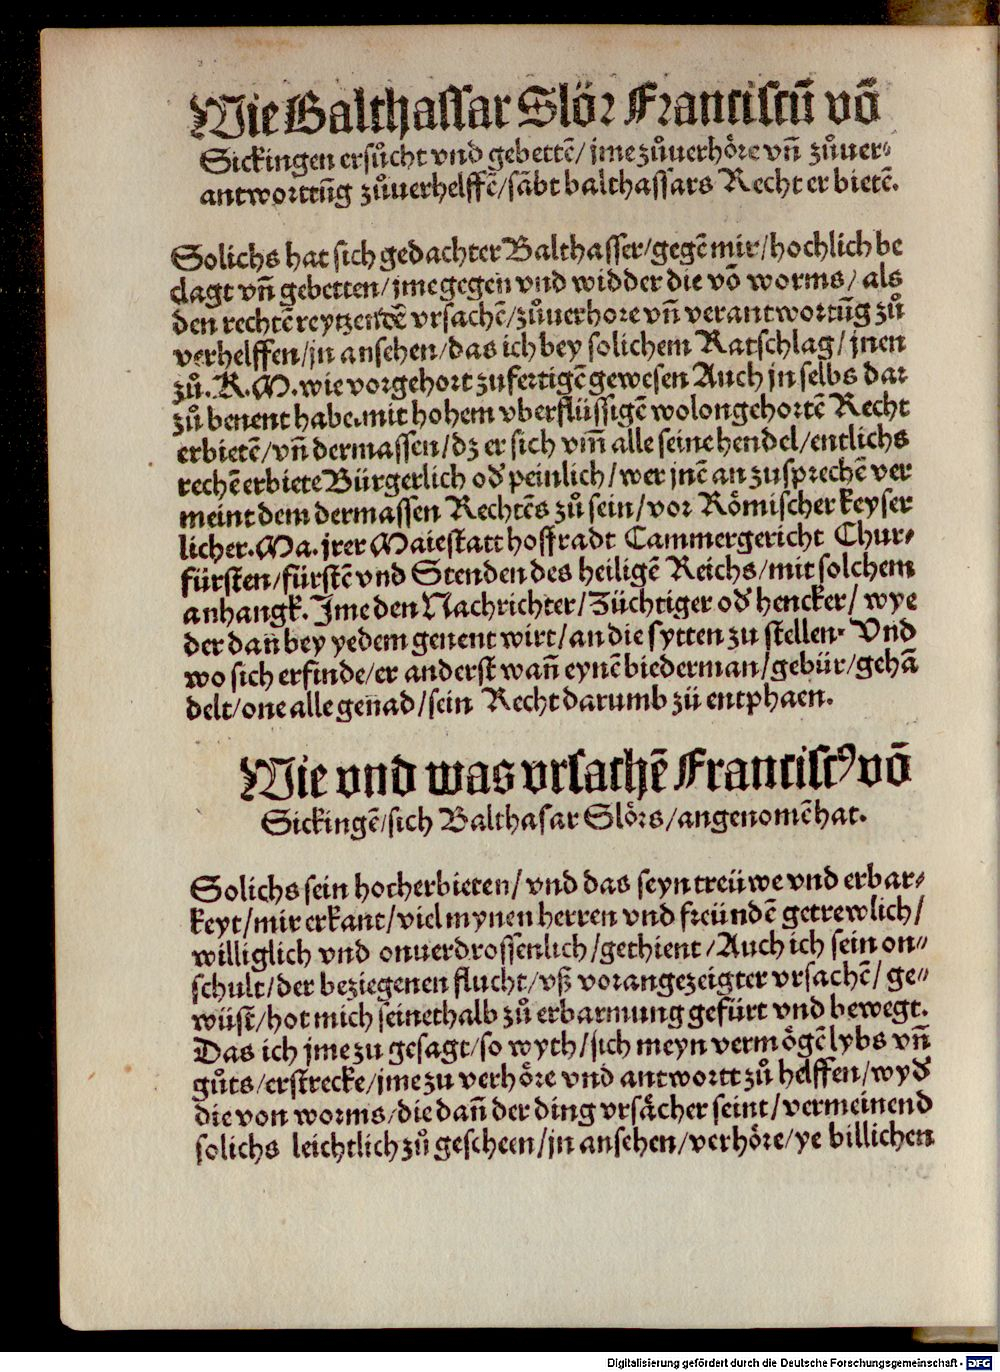 Wie Balthassar Slör Franciscū vō
Sickingen ersůcht vnd gebettē/ jme zůuerhöre vn̄ zůuer⸗
antworttūg zůuerhelffē/sābt balthassars Recht er bietē.
Solichs hat sich gedachter Balthasser/gegē mir/hochlich be
clagt vn̄ gebetten/jme gegen vnd widder die vō worms/ als
den rechtē reytzendē vrsachē/zůuerhore vn̄ verantwortūg zů
verhelffen/jn ansehen/das ich bey solichem Ratschlag/ jnen
zů. R. M. wie vorgehort zufertigē gewesen Auch jn selbs dar
zů benent habe. mit hohem vberflüssigē wolongehortē Recht
erbietē/vn̄ dermassen/dz er sich vm̄ alle seine hendel/entlichs
rechē erbiete Bürgerlich od̕ peinlich/wer jnē an zusprechē ver
meint dem dermassen Rechtēs zů sein/vor Römischer keyser
licher. Ma. jrer Maiestatt hoffradt Cammergericht Chur⸗
fürsten/fürstē vnd Stenden des heiligē Reichs/mit solchem
anhangk. Jme den Nachrichter/Züchtiger od̕ hencker/ wye
der dan̄ bey yedem genent wirt/an die sytten zu stellen. Vnd
wo sich erfinde/er anderst wan̄ eynē biederman/gebür/gehā
delt/one alle gen̄ad/sein Recht darumb zü entphaen.
Wie vnd was vrsachē Franciscꝰ vō
Sickingē/sich Balthasar Slörs/angenomē hat.
Solichs sein hocherbieten/ vnd das seyn treüwe vnd erbar⸗
keyt/mir erkant/viel mynen herren vnd freündē getrewlich/
williglich vnd onuerdrossenlich/gethient/Auch ich sein on⸗
schult/der beziegenen flucht/vß vorangezeigter vrsachē/ ge⸗
wüst/hot mich seinethalb zů erbarmung gefürt vnd bewegt.
Das ich jme zu gesagt/so wyth/sich meyn vermögē lybs vn̄
gůts/erstrecke/jme zu verhöre vnd antwortt zů helffen/wyd̕
die von worms/die dan̄ der ding vrsächer seint/vermeinend
solichs leichtlich zů gescheen/jn ansehen/verhöre/ye billichen
Digitalisierung gefördert durch die Deutsche Forschungsgemeinschaft - DFG